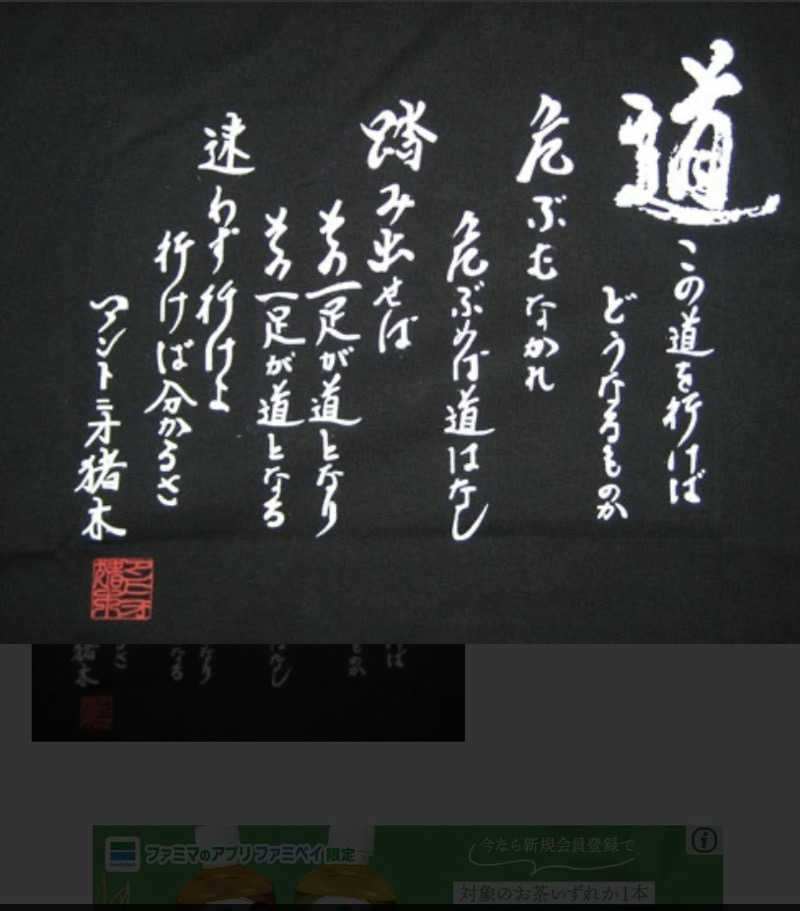 道
この道を行けば
どうなるものか
危ぶむなかれ
危ぶめば道はなし
踏み出せば
その一足が道となり
その一足が道となる
迷わず行けよ
行けば分かるさ
アントニオ猪木
ファミマのアプリファミペイ限定
今なら新規会員登録で
対象のお茶いずれか1本